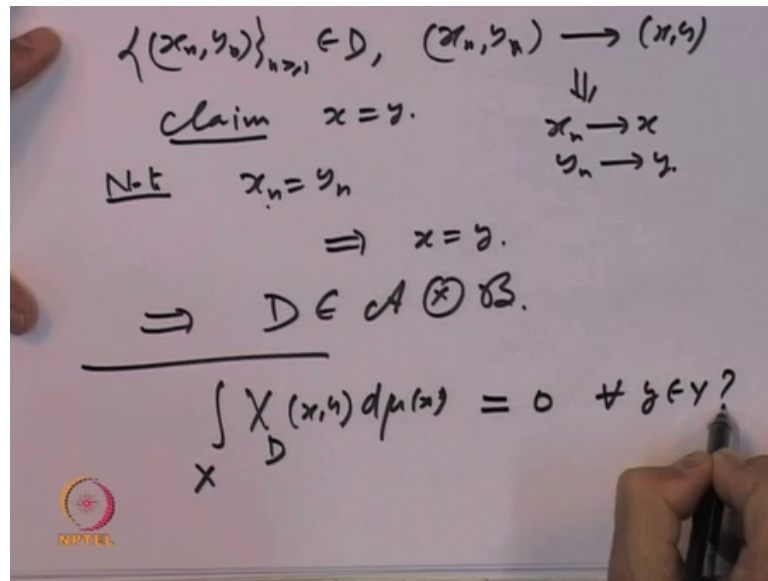 {(xₙ, yₙ)}ₙ≥₁ ∈ D, (xₙ, yₙ) → (x, y)
⇓
Claim x = y. xₙ → x
yₙ → y.
Not xₙ = yₙ
⇒ x = y.
⇒ D ∈ A ⊗ B.
∫_X χ_D (x, y) dμ(x) = 0 ∀ y ∈ Y ?
NPTEL